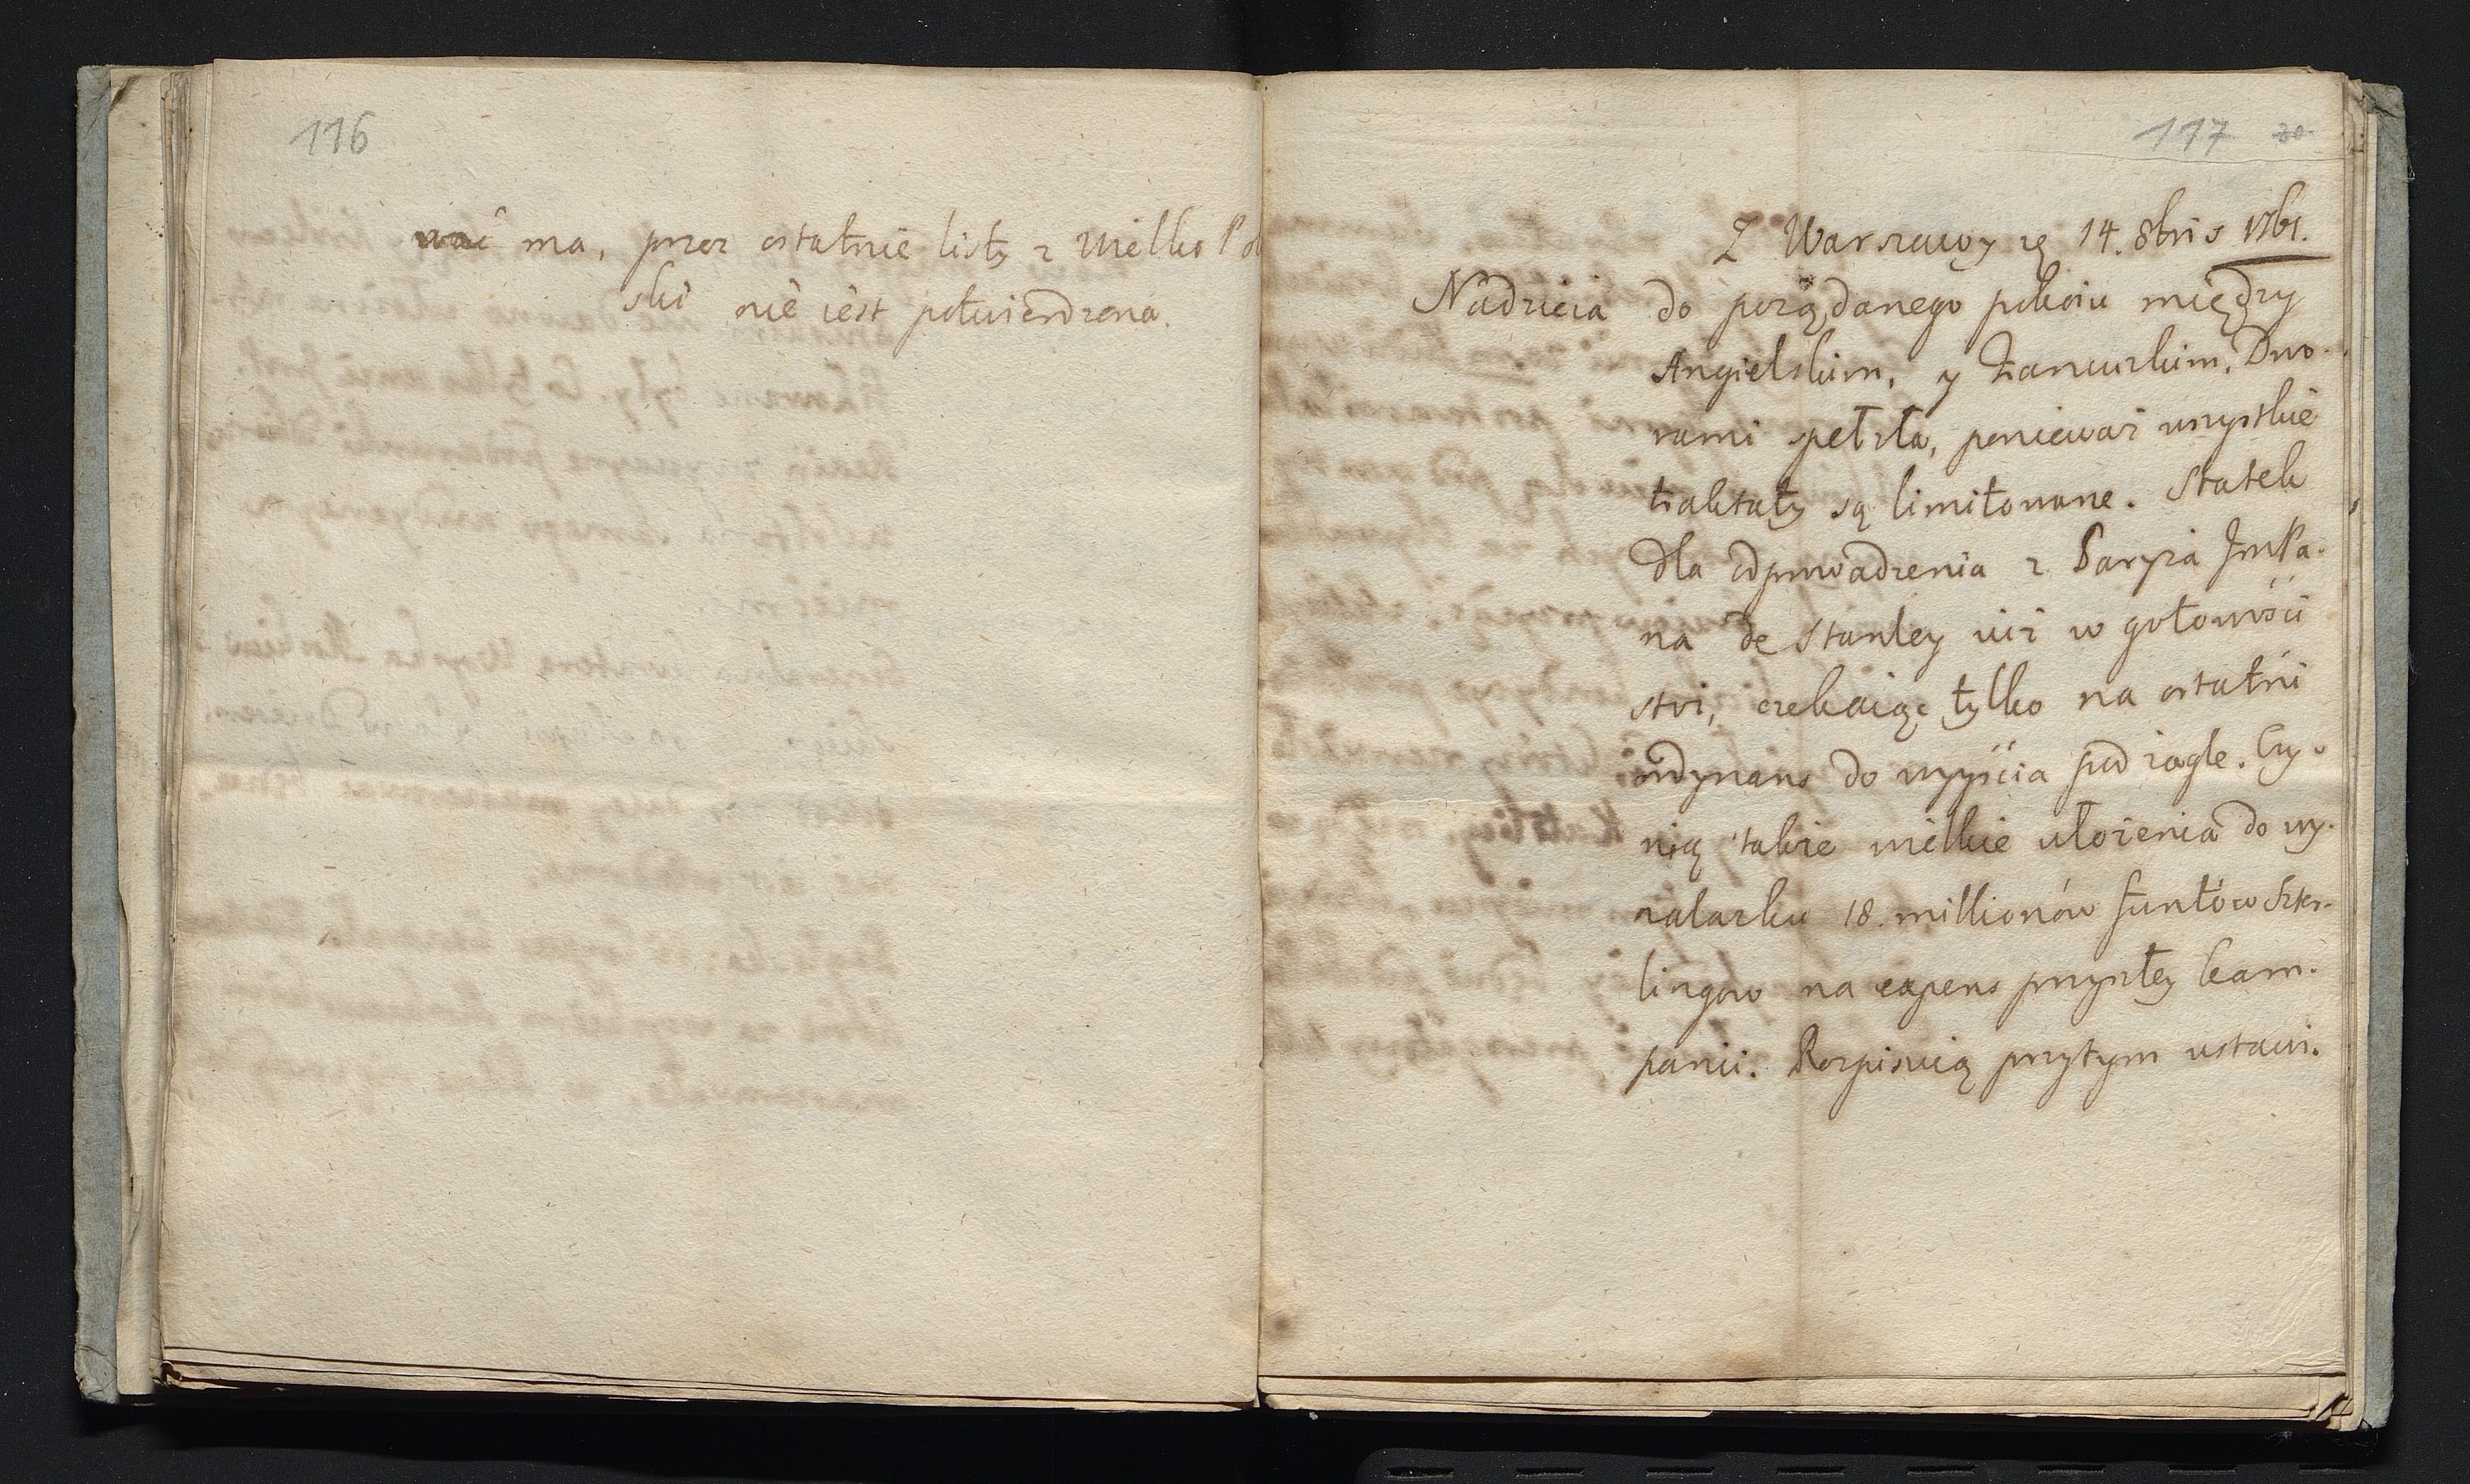 116
wać ma, przez ostatnie listy z Wielko Pol
ski nie iest potwierdzona.
117
Z Warszawy 14. 8bris 1761.
Nadzieia do pożądanego pokoiu między
Angielskim, y Francuzkim Dwo-
rami spełzła, ponieważ wszystkie
traktaty są limitowane. Statek
dla odprowadzenia z Paryża ImPa-
na de Stanley iuż w gotowości
stoi, czekaiąc tylko na ostatni
ordynans do wyiścia pod żagle. Czy-
nią także wielkie ułożenia do wy-
nalazku 18. millionów funtów Szter-
lingow na expens przyszłey kam-
panii. Rozpisuią przytym ustawi-